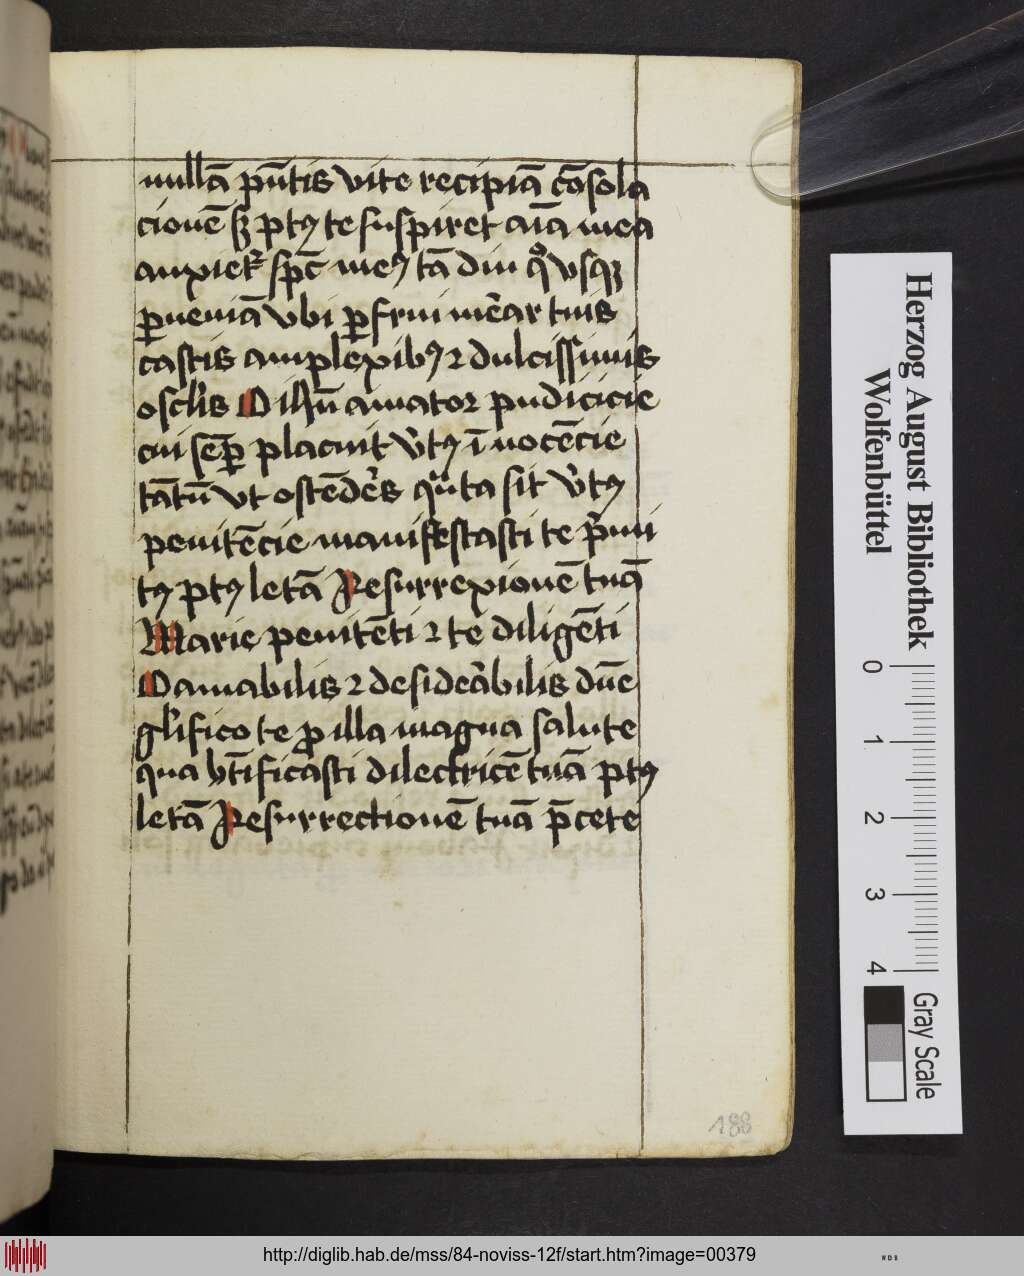 nullā pn̄tis vite recipiā cōsola
cionē sꝫ ptꝰ te suspiret aīa mea
anxietᷣ spc̄ meꝰ tā diu qͦ vsqꝫ
ꝑueniā vbi ꝑfrui mēar tuis
castis amplexibꝰ ⁊ dulcissimis
osclis O ihū amator pudicicie
cui semꝑ placuit v̓tꝰ īnocēcie
tātū vt ostēdēs qͣnta sit v̓tꝰ
penitēcie manifestasti te pͥmi
tꝰ ptꝰ letā Resurrexionē tuā
Marie penitēti ⁊ te diligēti
O amabilis ⁊ desideͣbilis dn̄e
glͥifico te ꝓ illa magna salute
qua btīficasti dilectricē tuā ptꝰ
letā Resurrectionē tuā p̄ cete
188
Herzog August Bibliothek
Wolfenbüttel
0 1 2 3 4
Gray Scale
http://diglib.hab.de/mss/84-noviss-12f/start.htm?image=00379